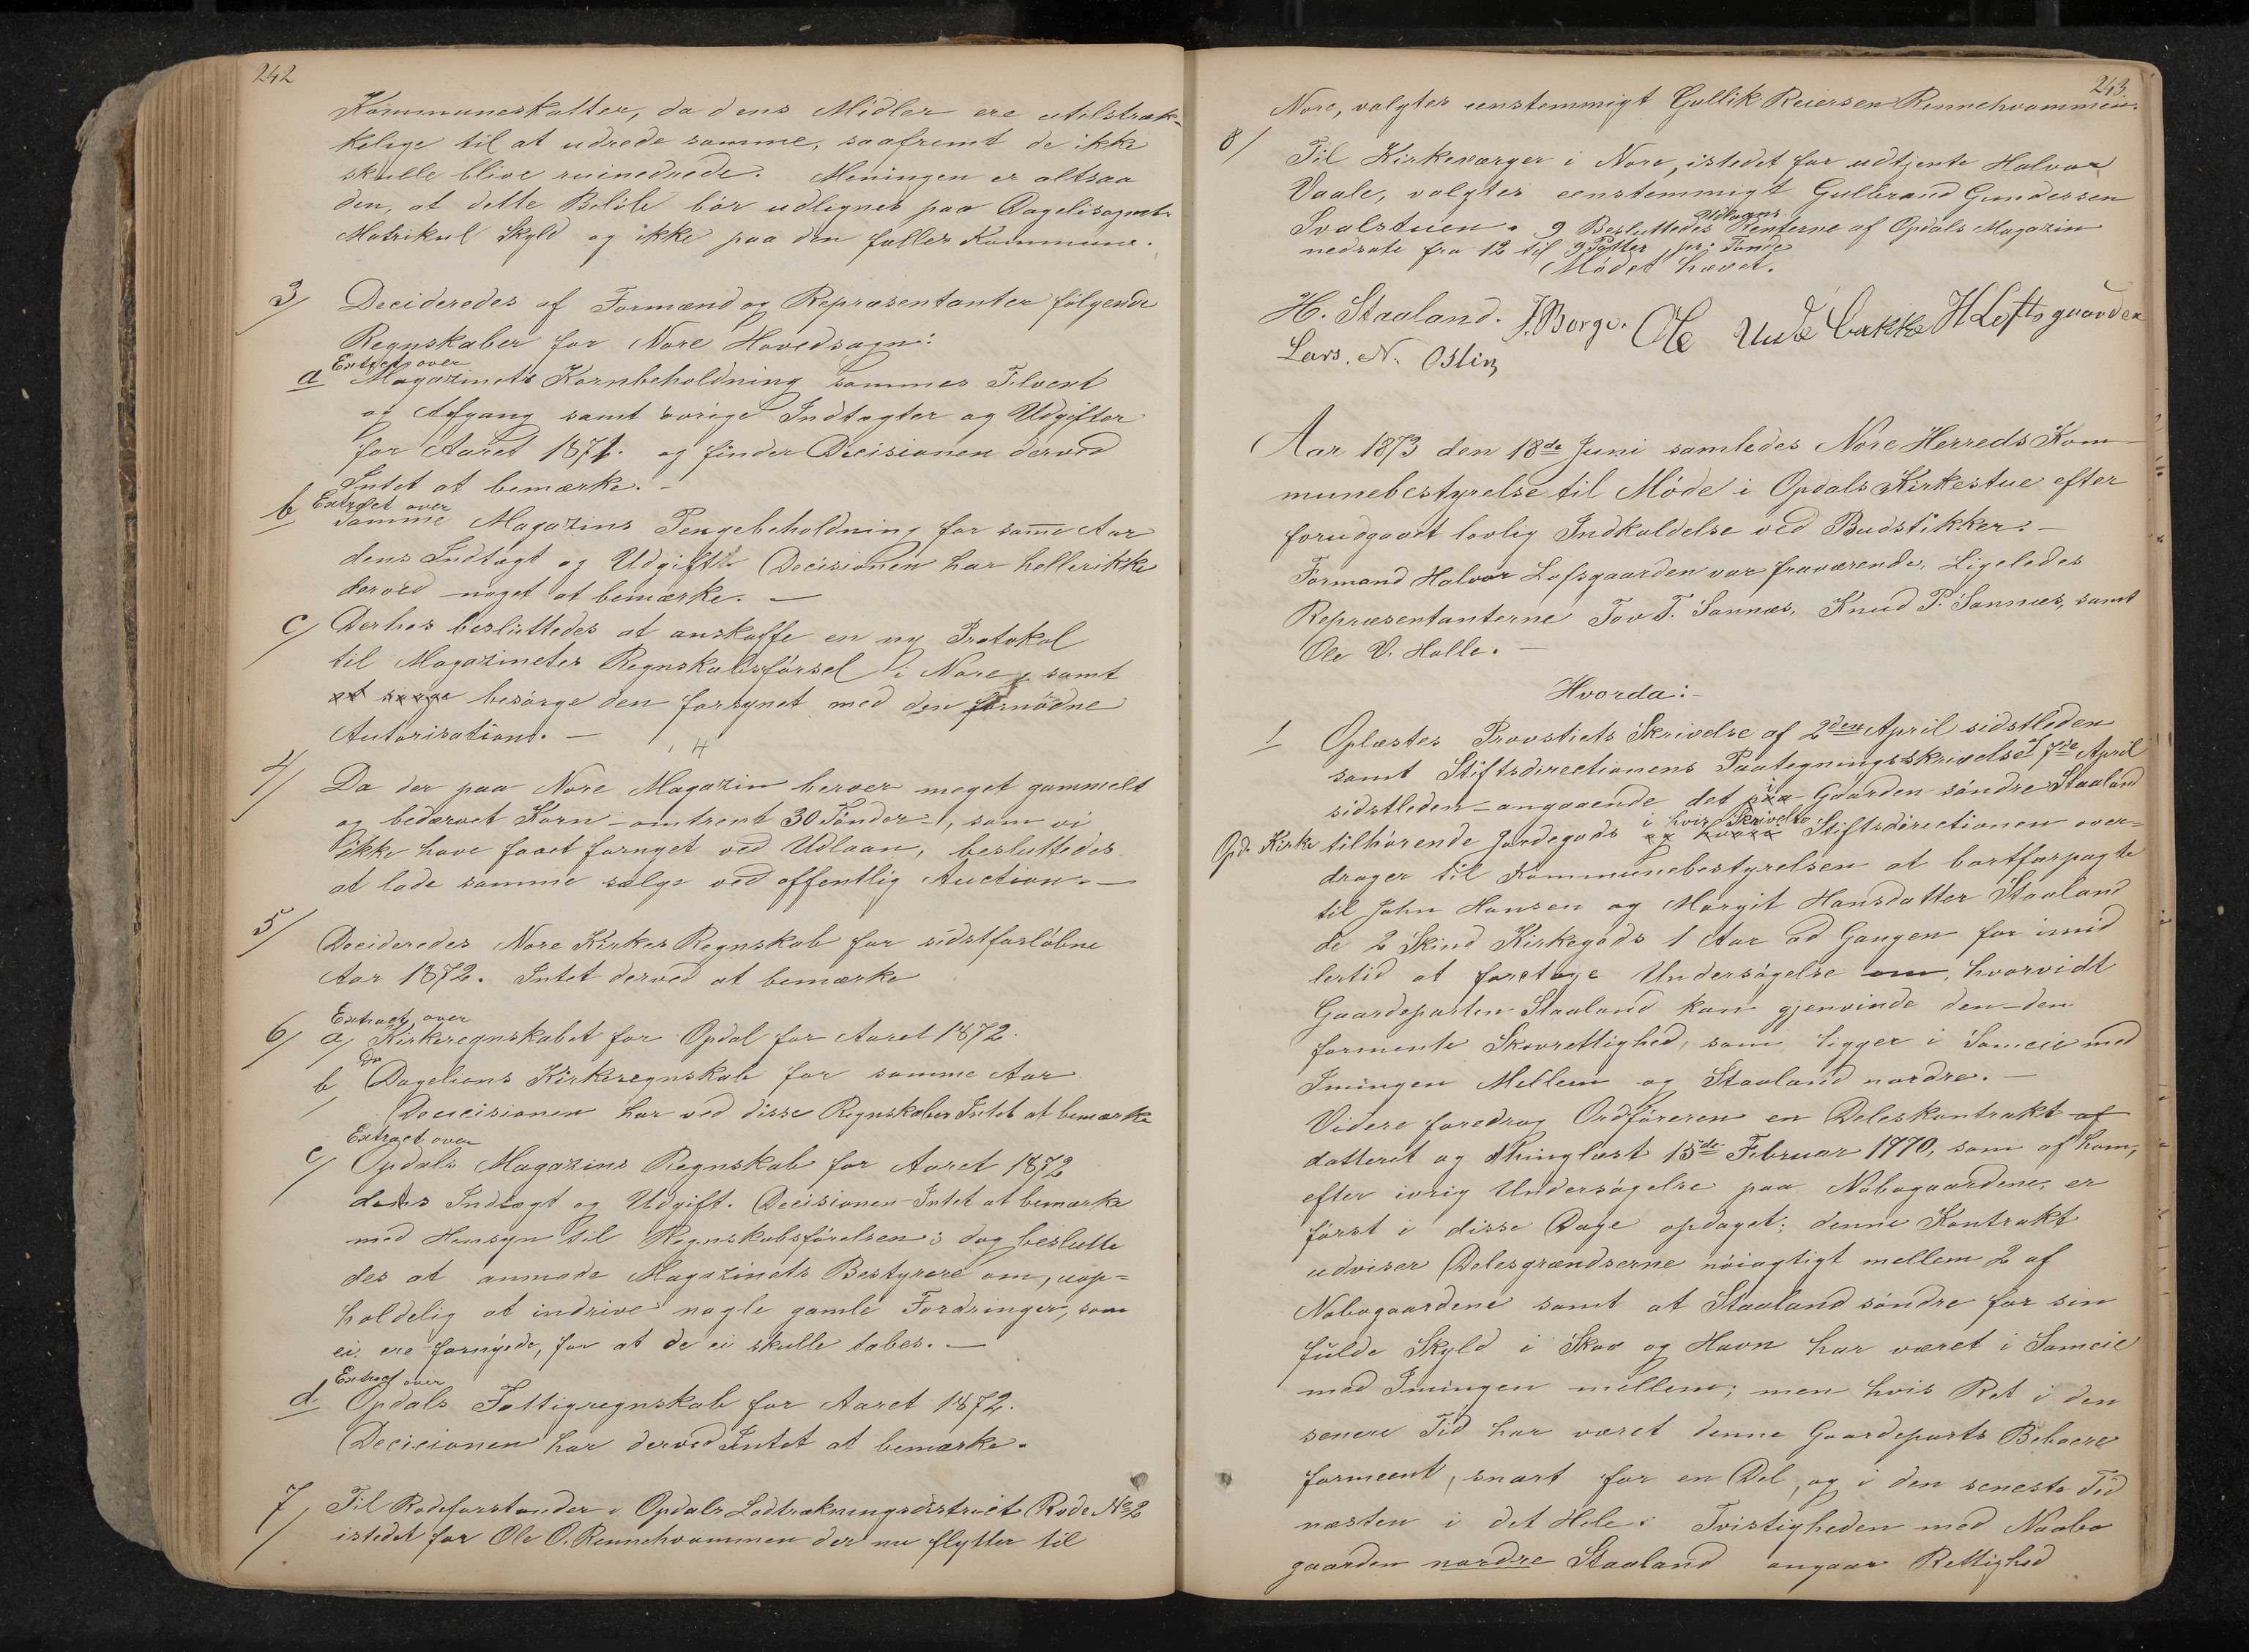 242
Kommuneskatter, da dens Midler ere utilstræk-
kelige til at udrede samme, saafremt de ikke
skulle blive ruinerede. Meningen er altsaa
den, at dette Beløb bør udlignes paa Dagelisogns
Matrikul Skyld og ikke paa den fælles Kommune.
3/ Decideredes af Formænd og Repræsentanter følgende
Regnskaber for Nore Hovedsogn:
Extract over
a Magazinets Kornbeholdning sammes Tilvext
og Afgang samt øvrige Indtægter og Udgifter
for Aaret 1871. og finder Decisionen derved
Intet at bemærke. –
Extract over
b samme Magazins Pengebeholdning for samme Aar
dens Indtægt og Udgift. Decisionen har heller ikke
derved noget at bemærke. –
c/ Derhos besluttedes at anskaffe en ny Protokol
til Magazinetes Regnskabsførsel i Nore, samt
at sørge besørge den forsynet med den fornødne
Autorisation. –
4/ Da der paa Nore Magazin beroer meget gammelt
og bedærvet Korn – omtrent 30 Tønder –, som vi
ikke have faaet fornyet ved Udlaan, besluttedes
at lade samme sælge ved offentlig Auction. –
5/ Decideredes Nore Kirkes Regnskab for sidstforløbne
Aar 1872. Intet derved at bemærke
Extract over
6/ a/ Kirkeregnskabet for Opdal for Aaret 1872.
Do
b Dageliens Kirkeregnskab for samme Aar
Decicisionen har ved disse Regnskaber Intet at bemærke
Extract over
c/ Opdals Magazins Regnskab for Aaret 1872
dets Indtægt og Udgift. Decisionen Intet at bemærke
med Hensyn til Regnskabsførelsen; dog beslutte
des at anmode Magazinets Bestyrere om, uop=
holdelig at indrive nogle gamle Fordringer, som
ei ere fornyede, for at de ei skulle tabes. –
Extract over
d Opdals Fattigregnskab for Aaret 1872.
Decicionen har derved Intet at bemærke.
7/ Til Rodeforstander i Opdals Lodtrækningsdistrict Rode No 2
istedet for Ole O. Rennehvammen der nu flytter til
243.
Nore, valgtes eenstemmigt Gullik Reiersen Rennehvammen.
8/ Til Kirkeværger i Nore, istedet for udtjente Halvor
Vaale, valgtes eenstemmigt Gulbrand Gundersen
Svalstuen. 9 Besluttedes Udlaans Renterne af Opdals Magazin
nedsate fra 12 til 9 Potter pr. Tønde
Mødet hævet.
H. Staaland. J. Borge. Ole Undebakke H Loftsgaarden
Lars. N. Østin
Aar 1873 den 18de Juni samledes Nore Herreds Kom-
munebestyrelse til Møde i Opdals Kirkestue efter
forudgaaet lovlig Indkaldelse ved Budstikker. –
Formand Halvor Lofsgaarden var fraværende. Ligeledes
Repræsentanterne Tov T. Sønnæs, Knud P. Sønnæs, samt
Ole V. Halle. –
Hvorda: –
1 Oplæstes Provstiets Skrivelse af 2den April sidstleden
samt Stiftsdirectionens Paategningsskrivelse af 7de April
sidstleden – angaaende det i paa Gaarden søndre Staaland
Opd. Kirke tilhørende Jordegods i hvis Skrivelse Stiftsdirectionen over=
drager til Kommunebestyrelsen at bortforpagte
til John Hansen og Margit Hansdatter Staaland
de 2 Skind Kirkegods 1 Aar ad Gangen for imid
lertid at foretage Undersøgelse om, hvorvidt
Gaardeparten Staaland kan gjenvinde den – den
formente Skovrettighed, som ligger i Sameie med
Imingen Mellem og Staaland nordre. –
Videre foredrog Ordføreren en Deleskontrakt af
datteret og thinglæst 15de Februar 1770, som af ham,
efter ivrig Undersøgelse paa Nabogaardene, er
først i disse Dage opdaget; denne Kontrakt
udviser Delesgrændserne nøiagtigt mellem 2 af
Nabogaardene samt at Staaland søndre for sin
fulde Skyld i Skov og Havn har været i Sameie
med Imingen mellem; men hvis Ret i den
senere Tid har været denne Gaardeparts Beboere
formeent, snart for en Del, og i den seneste Tid
næsten i det Hele. Tvistigheden med Nabo
gaarden nordre Staaland angaar Rettighed